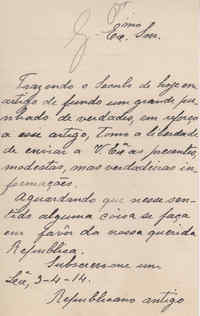 Exmo
Ex. Snr.
Trazendo o Seculo de hoje um
artigo de fundo um grande pu-
nhado de verdades, em reforço
a esse artigo, tomo a leberdade
de enviar a V. Exas as presentes,
modestas, mas verdadeiras in-
formações.
Aguardando que nesse sen-
tido alguma coisa se faça
em favôr da nossa querida
Republica.
Subscrevo-me um
3-4-14.
Republicano antigo